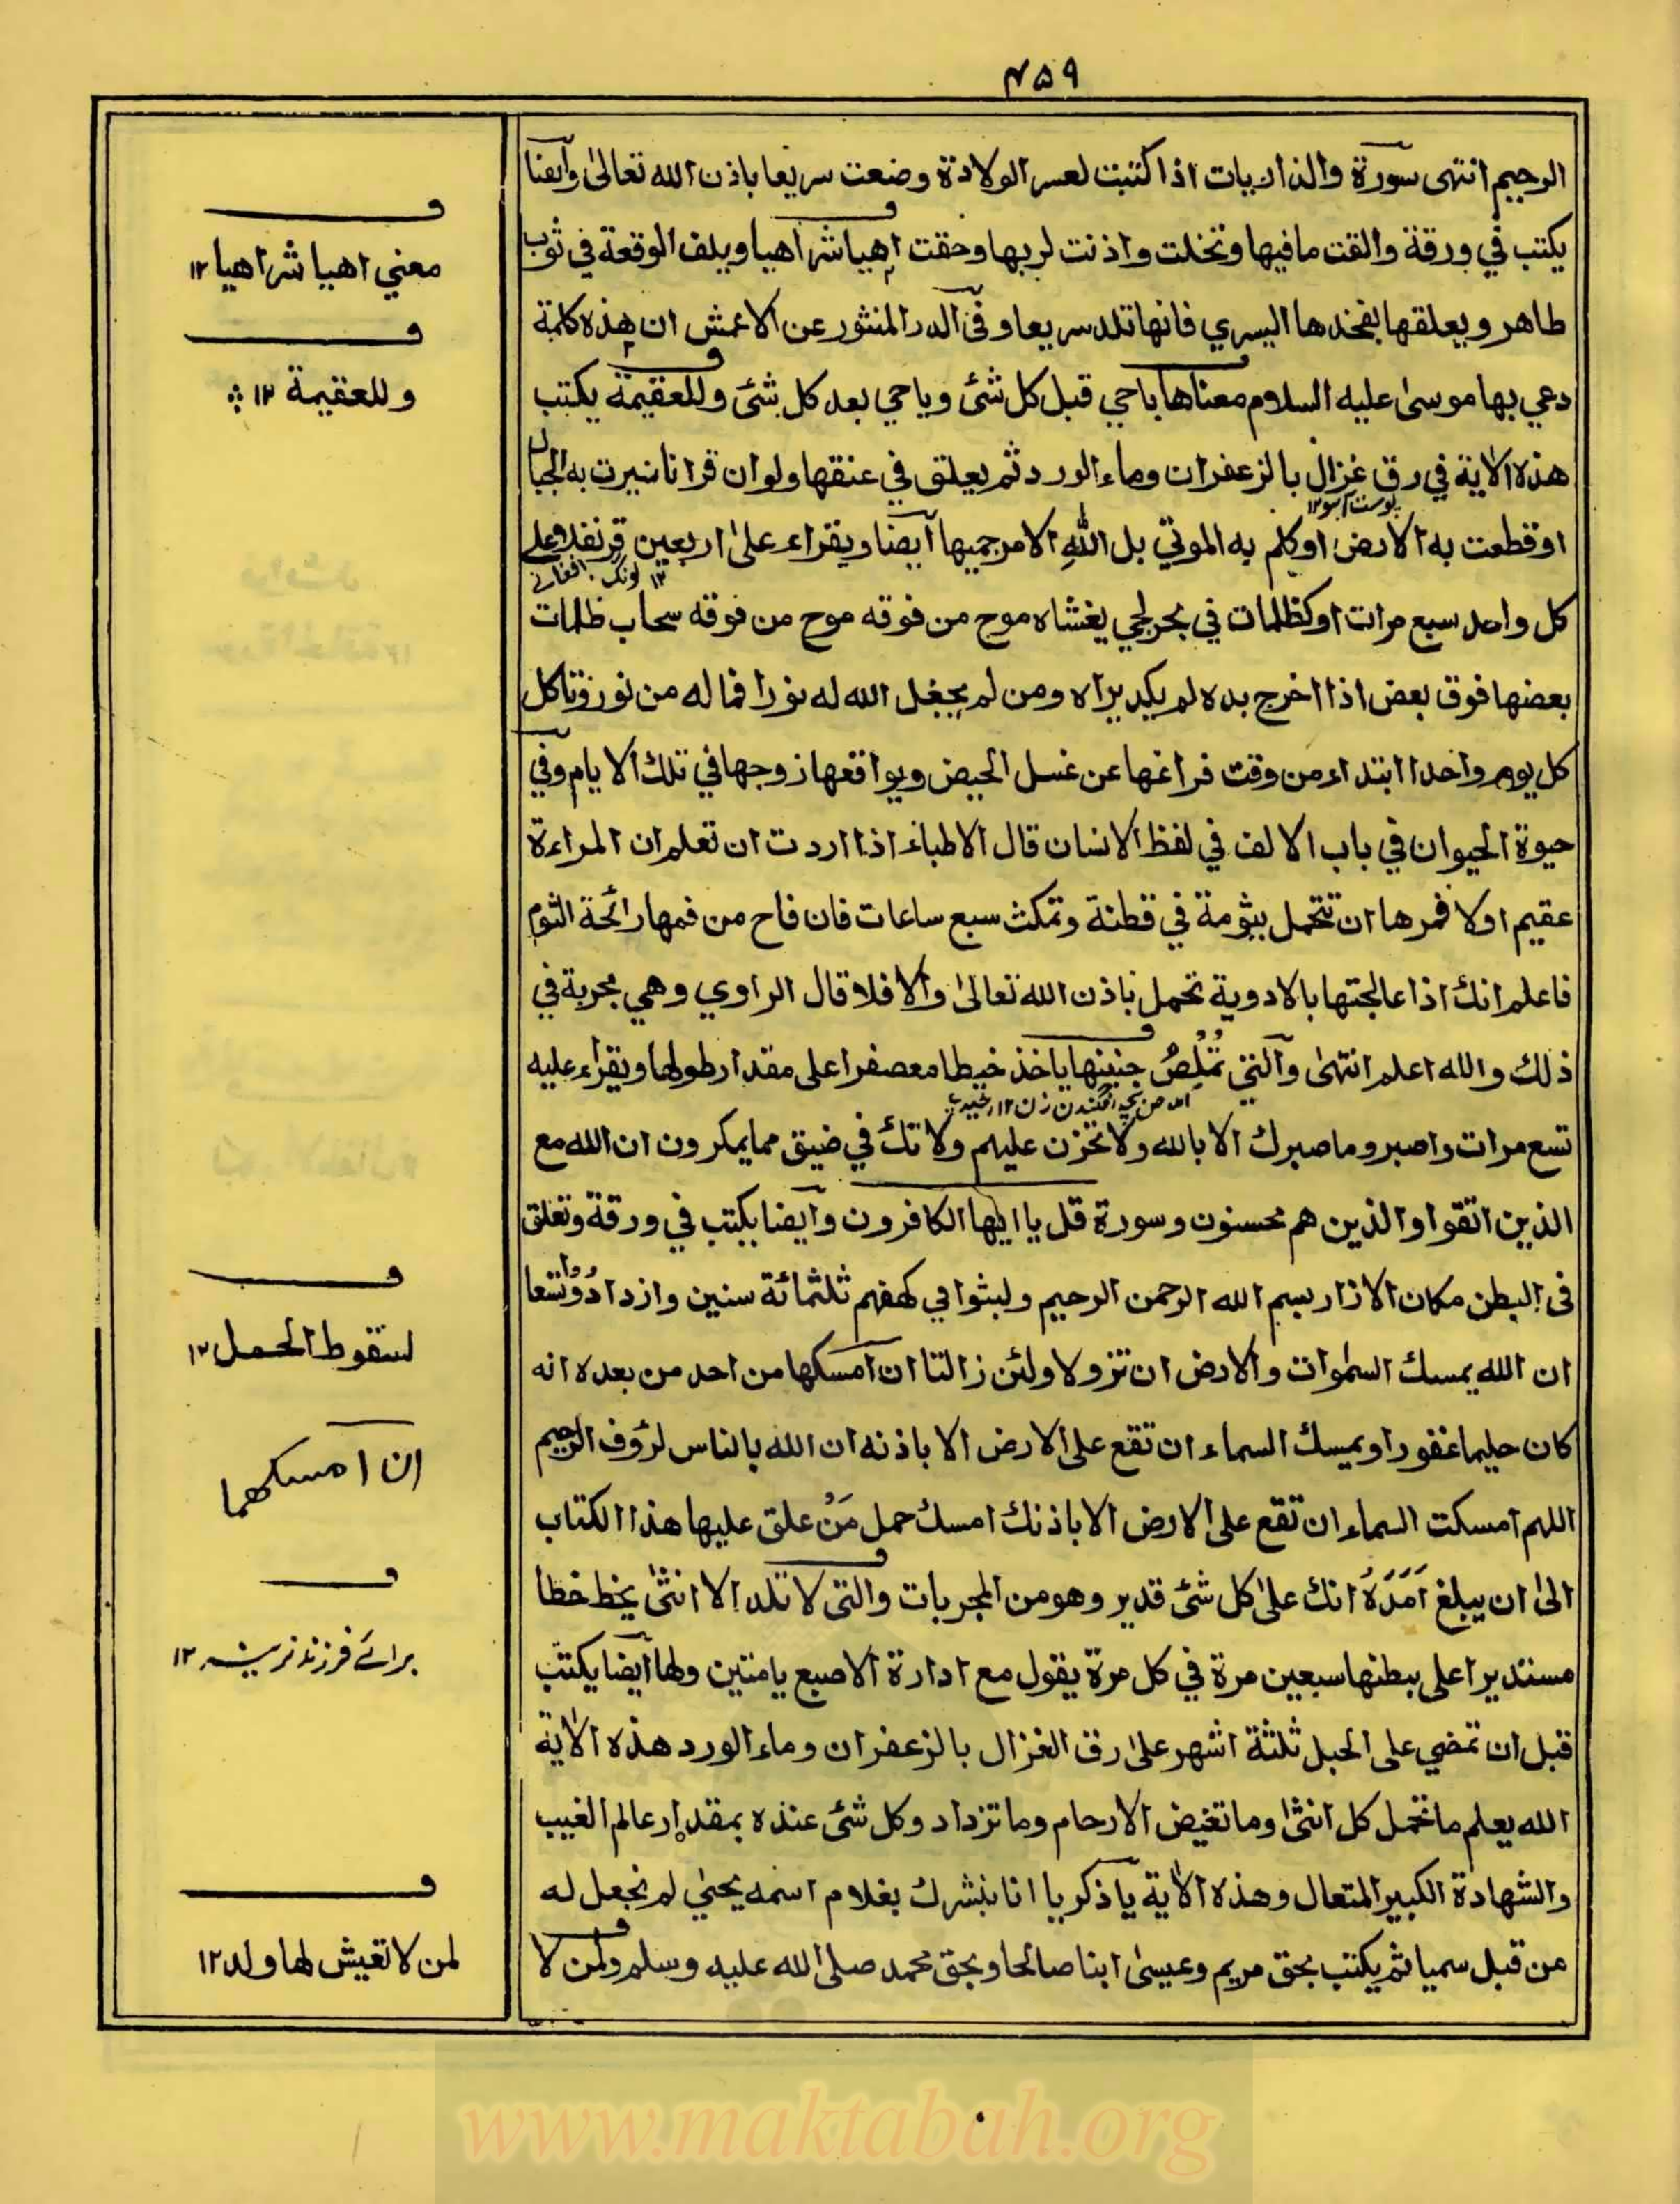 ۴۵۹
الرحيم انتهى سورة والذاريات اذا كتبت لعسر الولادة وضعت سريعا باذن الله تعالىٰ وايضا
يكتب في ورقة والقت مافيها وتخلت واذنت لربها وحقت اهيا شراهيا ويلف الوقعة في ثوب
طاهر ويعلقها بفخذها اليسري فانها تلد سريعا وفى الدر المنثور عن الاعمش ان هذه كلمة
دعي بها موسىٰ عليه السلام معناها ياحي قبل كل شئ وياحي بعد كل شئ وللعقيمة يكتب
هذه الاٰية في رق غزال بالزعفران وماء الورد ثم يعلق في عنقها ولو ان قرانا سيرت به الجبال
پوست آہو۱۲
اوقطعت به الارض اوكلم به الموتي بل الله الامر جميعا ايضا ويقراء علىٰ اربعين قرنفلا وعلي
۱۲ لونگ افغانے
كل واحد سبع مرات اوكظلمات في بحر لجي يغشاه موج من فوقه موج من فوقه سحاب ظلمات
بعضها فوق بعض اذا اخرج يده لم يكد يراه ومن لم يجعل الله له نورا فماله من نور وتاكل
كل يوم واحدا ابتداء من وقت فراغها عن غسل الحيض ويواقعها زوجها في تلك الايام وفي
حيوة الحيوان في باب الالف في لفظ الانسان قال الاطباء اذا اردت ان تعلم ان المراءة
عقيم اولا فمرها ان تتحمل بثومة في قطنة وتمكث سبع ساعات فان فاح من فمها رائحة الثوم
فاعلم انك اذا عالجتها بالادوية تحمل باذن الله تعالىٰ والا فلا قال الراوي وهي مجربة في
ذلك والله اعلم انتهىٰ والتي تُمْلِصُ جنينها ياخذ خيطا معصفرا على مقدار طولها ويقراء عليه
تسع مرات واصبر وما صبرك الا بالله ولا تحزن عليهم ولا تك في ضيق مما يمكرون ان الله مع
الذين اتقوا والذين هم محسنون وسورة قل ياايها الكافرون وايضا يكتب في ورقة وتعلق
فى البطن مكان الازار بسم الله الرحمن الرحيم ولبثوا في كهفهم ثلثمائة سنين وازدادُوْا تسعا
ان الله يمسك السمٰوات والارض ان تزولا ولئن زالتا ان امسكها من احد من بعده انه
كان حليما غفورا ويمسك السماء ان تقع على الارض الا باذنه ان الله بالناس لرؤف الرحيم
اللهم امسكت السماء ان تقع على الارض الا باذنك امسك حمل مَنْ علق عليها هذا الكتاب
الىٰ ان يبلغ اَمَدَهُ انك علىٰ كل شئ قدير وهو من المجربات والتى لا تلد الا انثىٰ يخط خطا
مستديرا على بطنها سبعين مرة في كل مرة يقول مع ادارة الاصبع يا متين ولها ايضا يكتب
قبل ان تمضي على الحبل ثلثة اشهر علىٰ رق الغزال بالزعفران وماء الورد هذه الاٰية
الله يعلم ما تحمل كل انثىٰ وما تغيض الارحام وما تزداد وكل شئ عنده بمقدار عالم الغيب
والشهادة الكبير المتعال وهذه الاٰية يا ذكريا انا نبشرك بغلام اسمه يحيىٰ لم نجعل له
من قبل سميا ثم يكتب بحق مريم وعيسىٰ ابنا صالحا وبحق محمد صلى الله عليه وسلم ولمن لا
معني اهيا شراهيا ۱۲
وللعقيمة ۱۲
لسقوط الحمل ۱۲
ان امسكهما
براے فرزند نرینہ ۱۲
لمن لا تعيش لها ولد ۱۲
www.maktabah.org